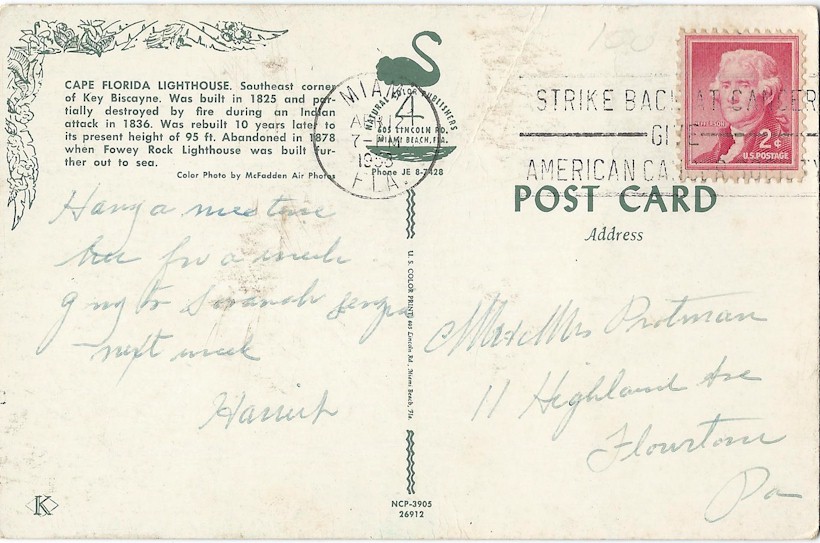 CAPE FLORIDA LIGHTHOUSE. Southeast corner
of Key Biscayne. Was built in 1825 and par-
tially destroyed by fire during an Indian
attack in 1836. Was rebuilt 10 years later to
its present height of 95 ft. Abandoned in 1878
when Fowey Rock Lighthouse was built fur-
ther out to sea.
Color Photo by McFadden Air Photos
NATURAL COLOR PUBLISHERS
605 LINCOLN RD.
MIAMI BEACH, FLA.
Phone JE 8-7428
MIAMI
4
FLA.
STRIKE BACK AT CANCER
GIVE
AMERICAN CANCER SOCIETY
2¢
U.S. POSTAGE
POST CARD
Address
Having a nice time
here for a week
going to Savanah
next week
Harriet
U. S. COLOR PRINT, 605 Lincoln Rd., Miami Beach, Fla.
Mr & Mrs Protman
11 Highland Ave
Flourtown
Pa
K
NCP-3905
26912